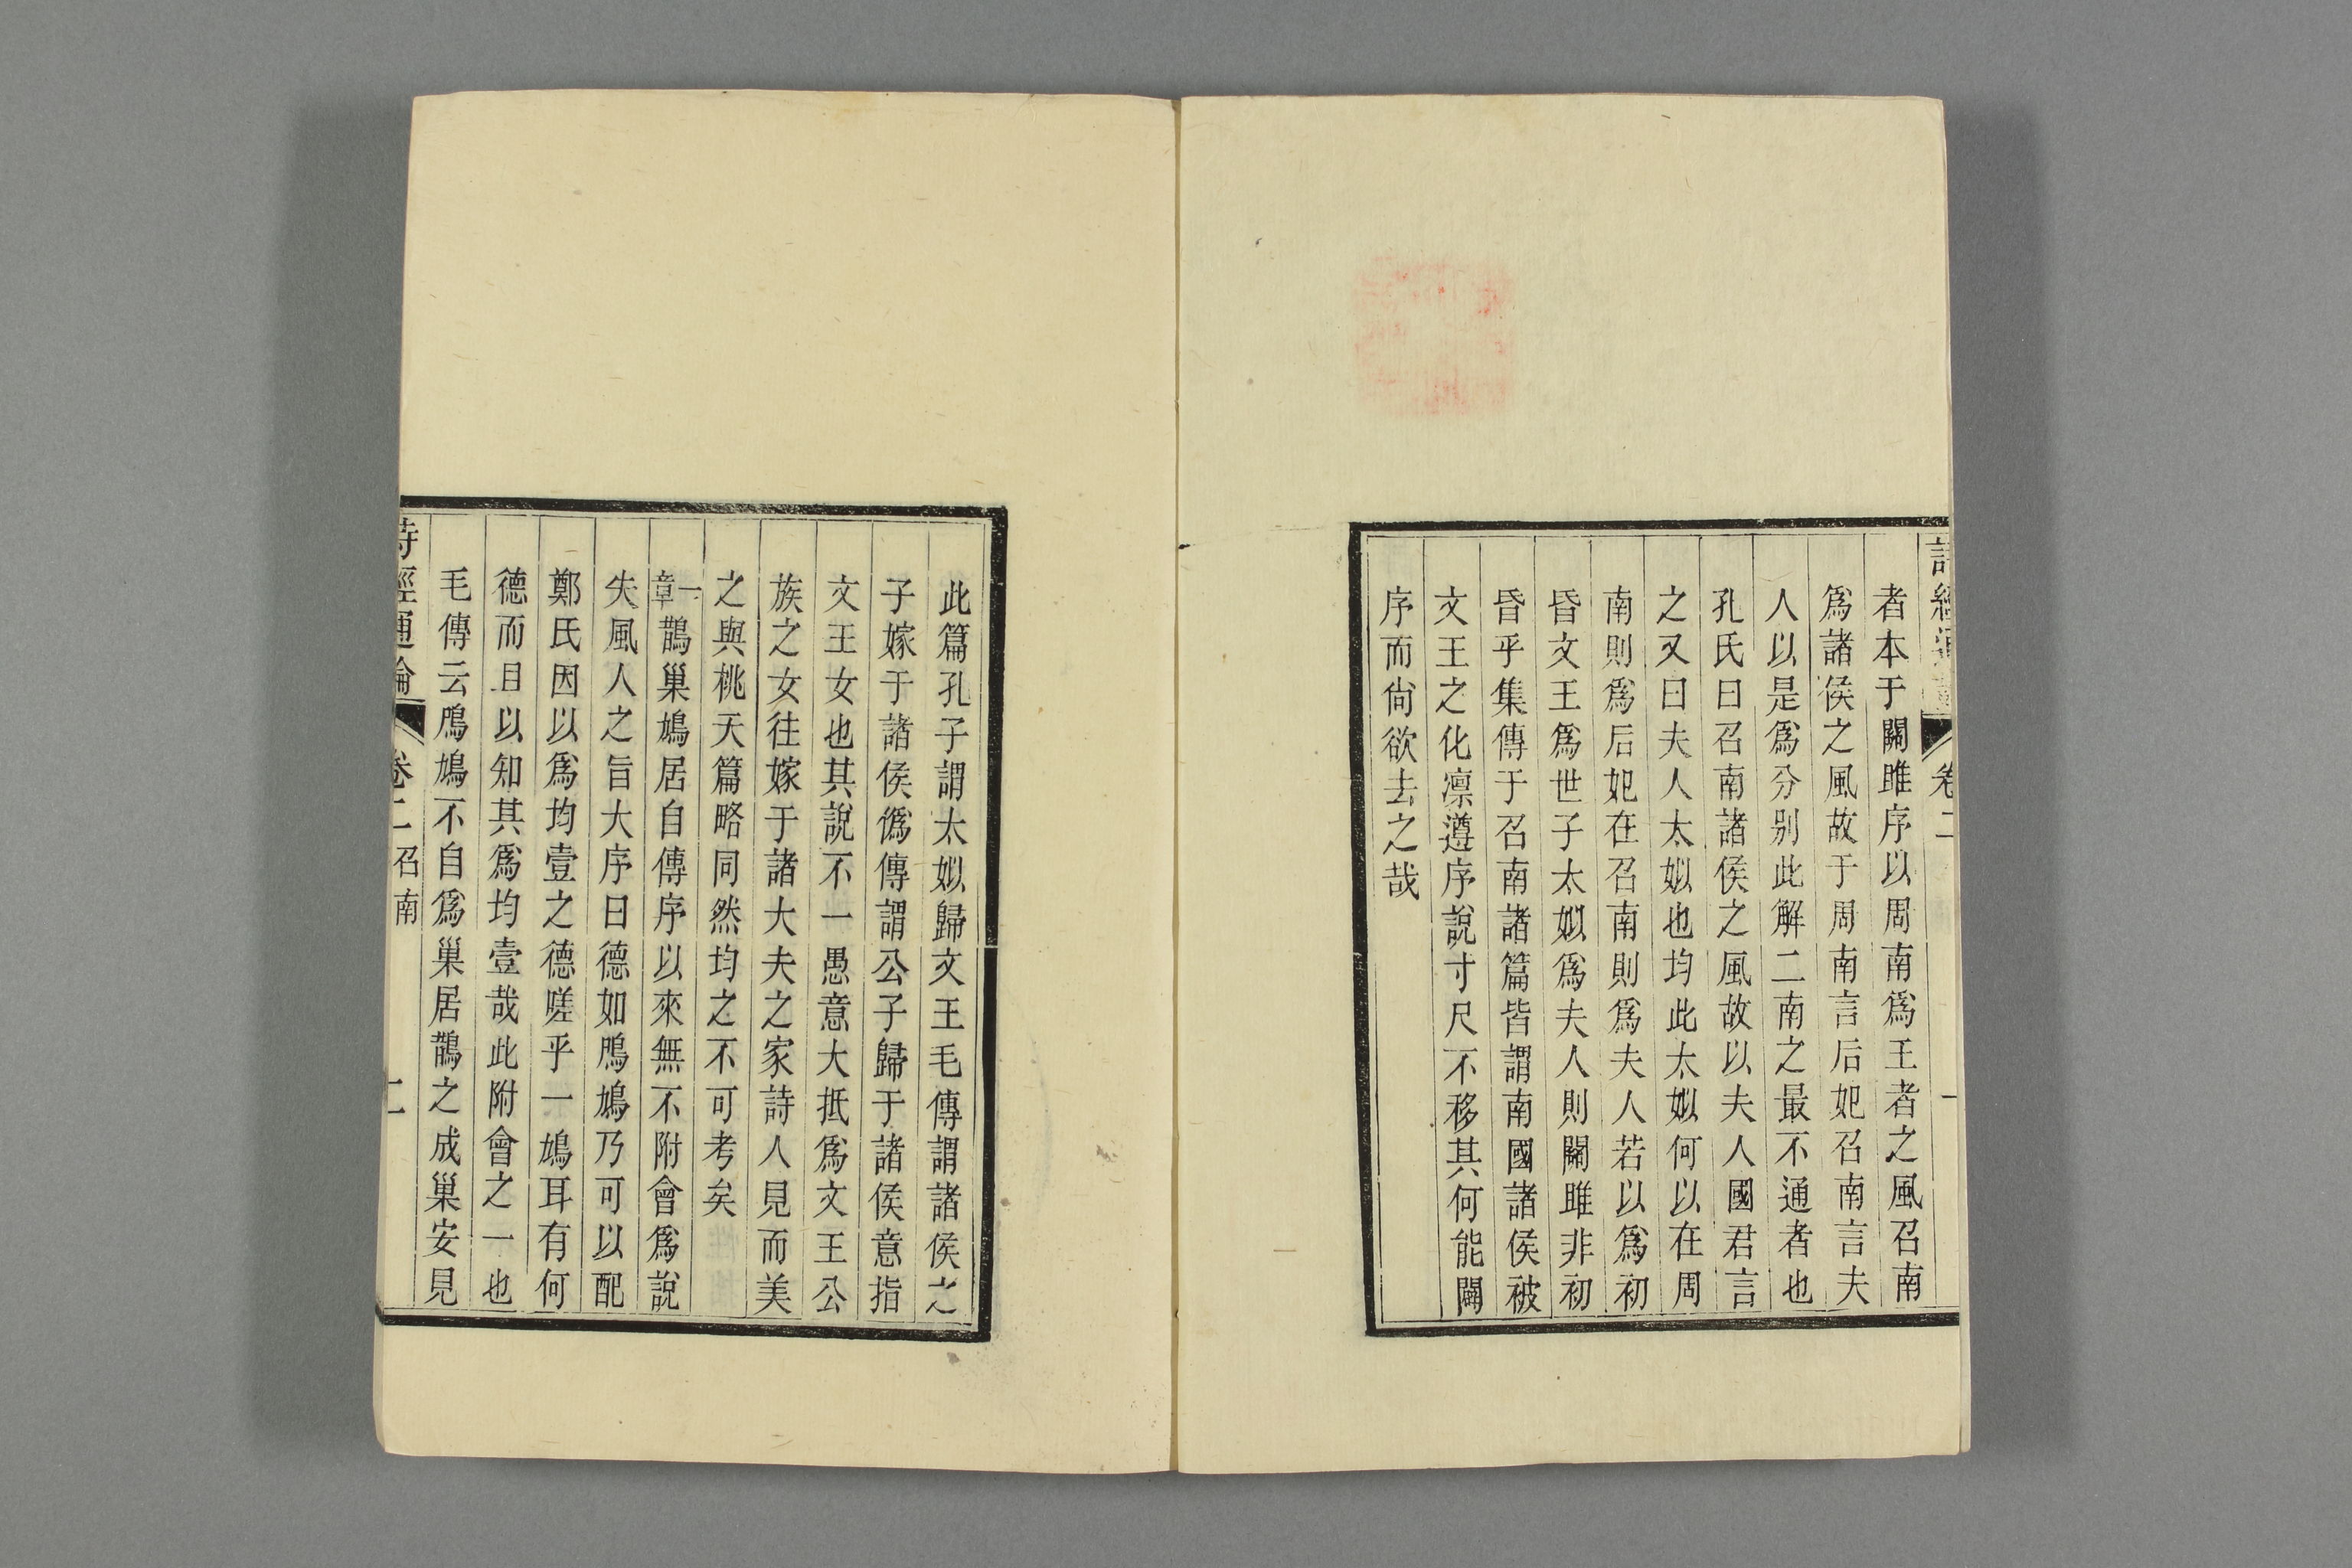 詩經通論 卷二 一
者本于關雎序以周南爲王者之風召南
爲諸侯之風故于周南言后妃召南言夫
人以是爲分别此解二南之最不通者也
孔氏曰召南諸侯之風故以夫人國君言
之又曰夫人太姒也均此太姒何以在周
南則爲后妃在召南則爲夫人若以爲初
昏文王爲世子太姒爲夫人則關雎非初
昏乎集傳于召南諸篇皆謂南國諸侯被
文王之化凛遵序說寸尺不移其何能闢
序而尙欲去之哉
此篇孔子謂太姒歸文王毛傳謂諸侯之
子嫁于諸侯僞傳謂公子歸于諸侯意指
文王女也其說不一愚意大抵爲文王公
族之女往嫁于諸大夫之家詩人見而美
之與桃夭篇略同然均之不可考矣
一章鵲巢鳩居自傳序以來無不附會爲說
失風人之旨大序曰德如鳲鳩乃可以配
鄭氏因以爲均壹之德嗟乎一鳩耳有何
德而且以知其爲均壹哉此附會之一也
毛傳云鳲鳩不自爲巢居鵲之成巢安見
詩經通論 卷二召南 二